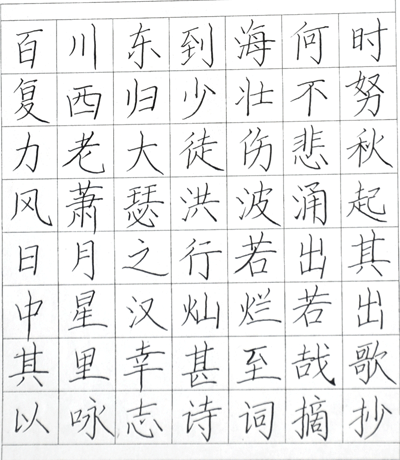 百川东到海何时
复西归少壮不努
力老大徒伤悲秋
风萧瑟洪波涌起
日月之行若出其
中星汉灿烂若出
其里幸甚至哉歌
以咏志诗词摘抄